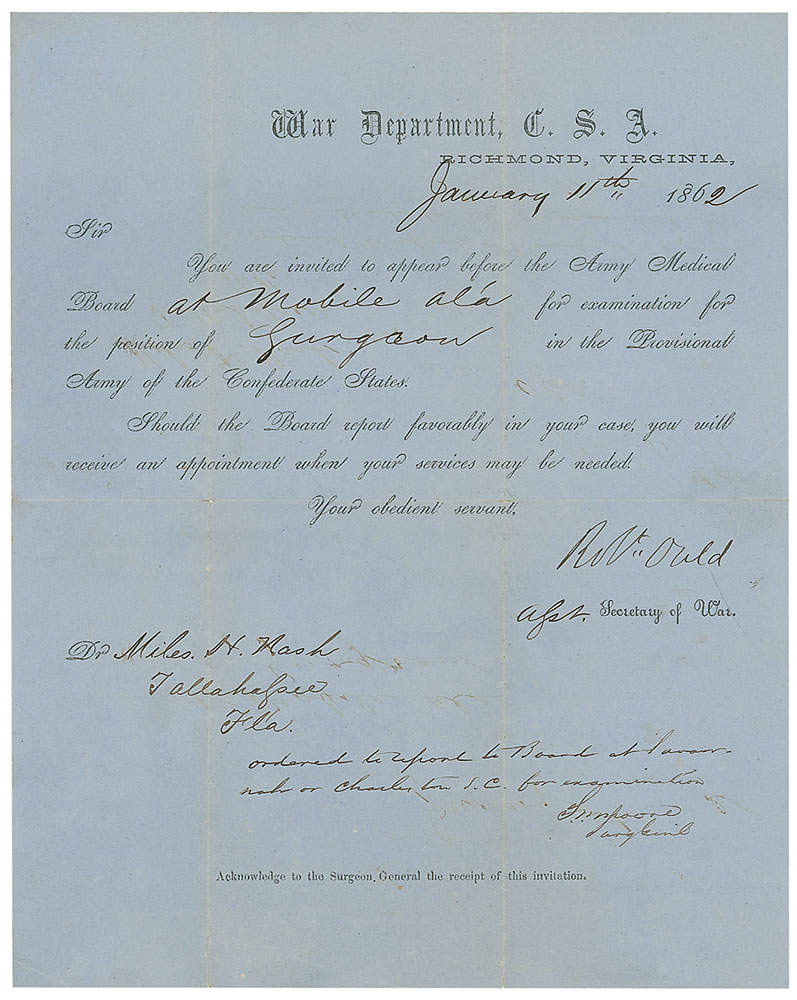 War Department, C. S. A.
RICHMOND, VIRGINIA,
January 11th 1862
Sir
You are invited to appear before the Army Medical
Board at Mobile Ala for examination for
the position of Surgeon in the Provisional
Army of the Confederate States.
Should the Board report favorably in your case, you will
receive an appointment when your services may be needed.
Your obedient servant,
Robt. Ould
Asst. Secretary of War.
Dr Miles. H. Nash
Tallahassee
Fla.
ordered to report to Board at Savan-
nah or Charleston S.C. for examination
S.P. Moore
Surg Genl
Acknowledge to the Surgeon General the receipt of this invitation.